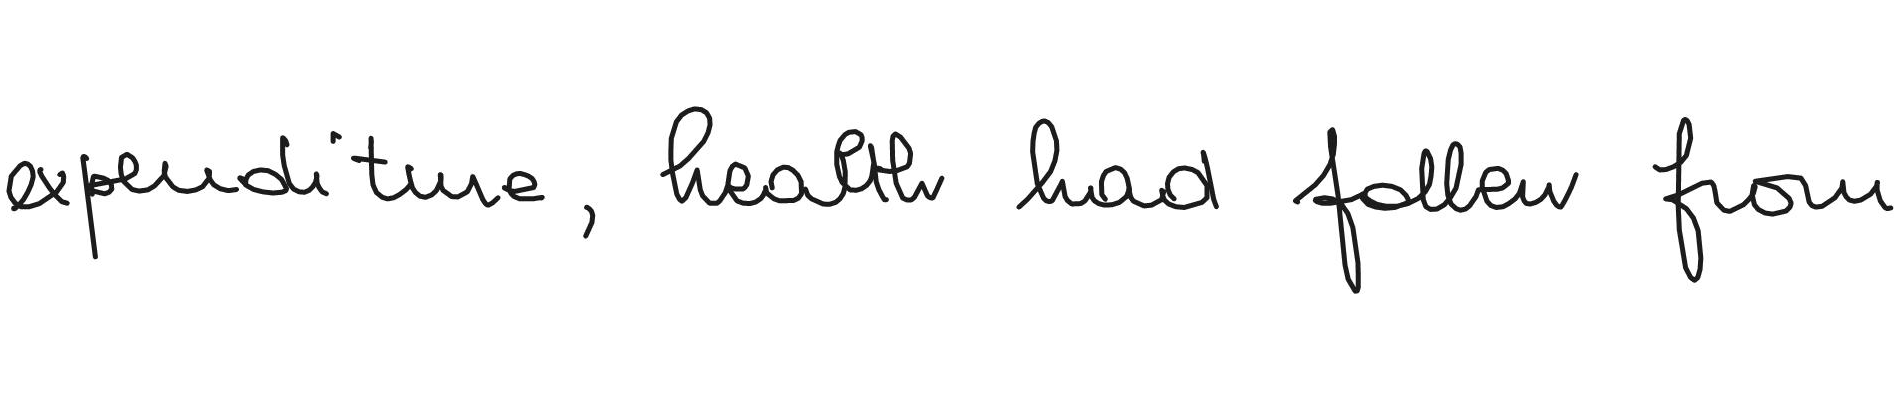 expenditure, health had fallen from